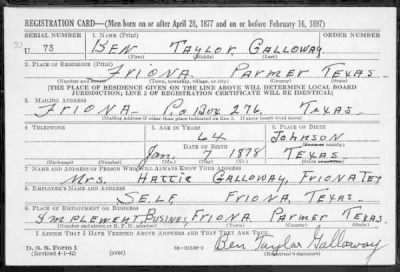 REGISTRATION CARD—(Men born on or after April 28, 1877 and on or before February 16, 1897)
SERIAL NUMBER 1. NAME (Print) ORDER NUMBER
U 73 BEN TAYLOR GALLOWAY
(First) (Middle) (Last)
2. PLACE OF RESIDENCE (Print)
FRIONA PARMER TEXAS
(Number and street) (Town, township, village, or city) (County) (State)
[THE PLACE OF RESIDENCE GIVEN ON THE LINE ABOVE WILL DETERMINE LOCAL BOARD
JURISDICTION; LINE 2 OF REGISTRATION CERTIFICATE WILL BE IDENTICAL]
3. MAILING ADDRESS
FRIONA P.O BOX 276, TEXAS
(Mailing address if other than place indicated on line 2. If same insert word same)
4. TELEPHONE 5. AGE IN YEARS 6. PLACE OF BIRTH
64 JOHNSON
DATE OF BIRTH (Town or county)
JAN. 7 1878 TEXAS
(Exchange) (Number) (Mo.) (Day) (Yr.) (State or country)
7. NAME AND ADDRESS OF PERSON WHO WILL ALWAYS KNOW YOUR ADDRESS
MRS. HATTIE GALLOWAY, FRIONA TEX
8. EMPLOYER'S NAME AND ADDRESS
SELF FRIONA, TEXAS
9. PLACE OF EMPLOYMENT OR BUSINESS
IMPLEMENT, BUSINES, FRIONA PARMER TEXAS.
(Number and street or R. F. D. number) (Town) (County) (State)
I AFFIRM THAT I HAVE VERIFIED ABOVE ANSWERS AND THAT THEY ARE TRUE.
D. S. S. Form 1
(Revised 4-1-42) (over)
Ben Taylor Galloway
(Registrant's signature)